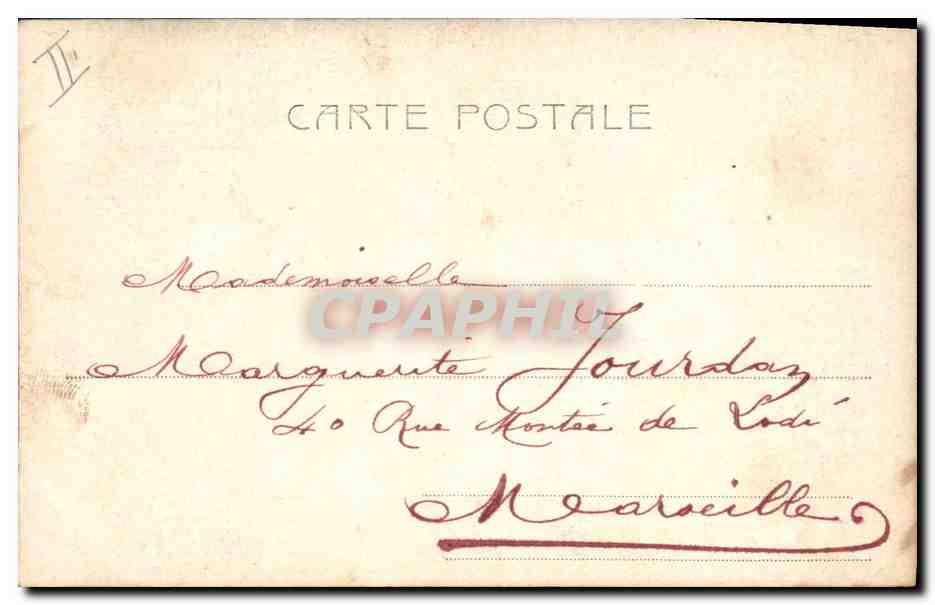 II.
CARTE POSTALE
Mademoiselle
CPAPHIL
Marguerite Jourdan
40 Rue Montée de Lodi
Marseille